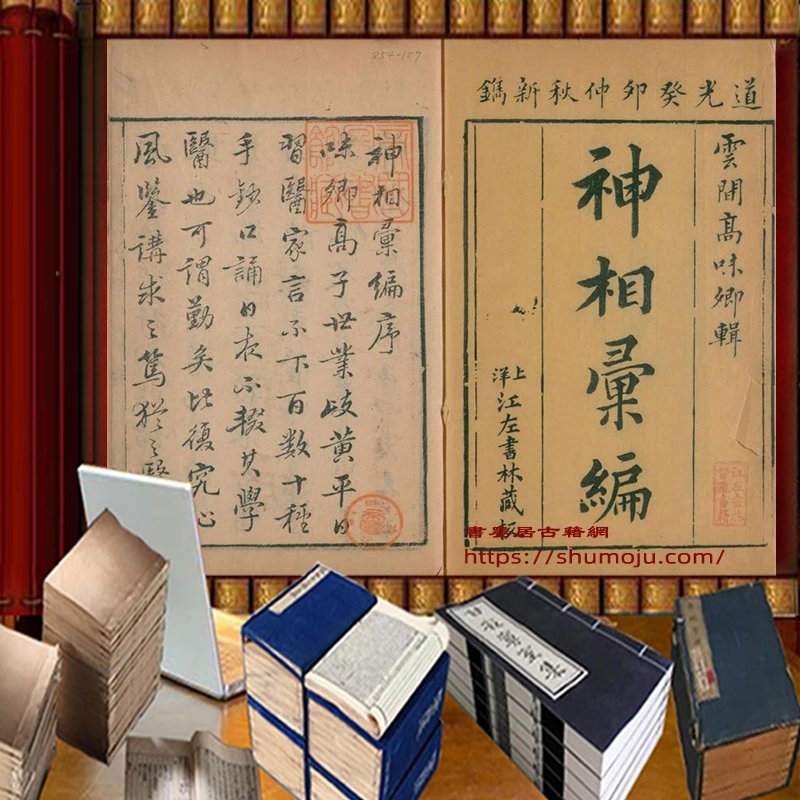 道光癸卯仲秋新鐫
雲間高味卿輯
神相彙編
上洋江左書林藏板
神相彙編序
味卿高子世業岐黃平日
習醫家言不下百數十種
手鈔口誦日夜不輟其學
醫也可謂勤矣比復究心
風鑒講求之篤猶之醫
854-157
書墨居古籍網
https://shumoju.com/